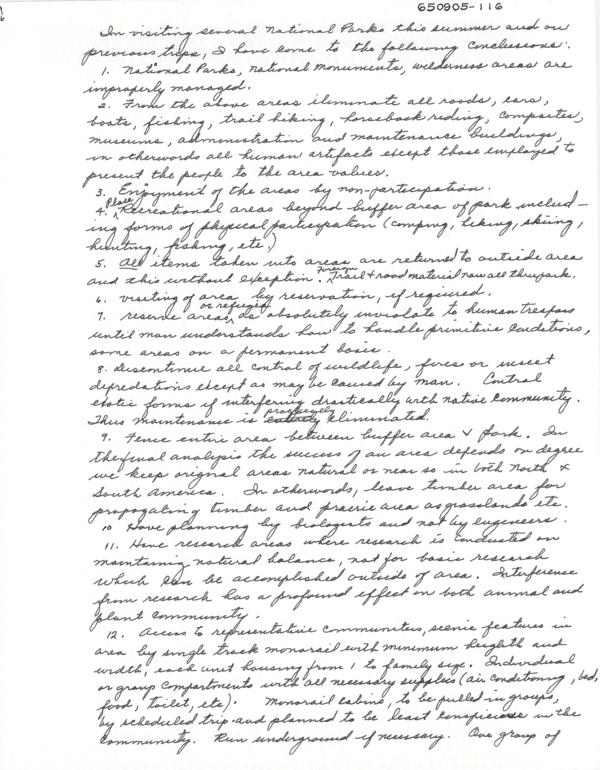 650905-116
In visiting several National Parks this summer and on
previous trips, I have come to the following conclusions:
1. National Parks, national monuments, wilderness areas are
improperly managed.
2. From the above areas iluminate all roads, cars,
boats, fishing, trail hiking, horseback riding, campsites,
museums, administration and maintenance buildings,
in otherwords all human artifacts except those employed to
present the people to the area values.
3. Enjoyment of the areas by non-participation.
4. Place Recreational areas beyond buffer area of park includ-
ing forms of physical participation (camping, hiking, skiing,
hunting, fishing, etc.)
5. All items taken into areas are returned to outside area
and this without exception. Foreign Trail & road material now all thru park.
6. visiting of area by reservation, if required.
7. reserve areas or refuges as absolutely inviolate to human trespass
until man understands how to handle primitive conditions,
some areas on a permanent basis.
8. Discontinue all control of wildlife, fires or insect
depredations except as may be caused by man. Control
exotic forms if interfering drastically with native community.
Thus maintenance is practically eliminated.
9. Fence entire area between buffer area & park. In
the final analysis the success of an area depends on degree
we keep original areas natural or near so in both North &
South America. In otherwords, leave timber area for
propogating timber and prairie area as grasslands etc.
10 Have planning by biologists and not by engineers.
11. Have research areas where research is conducted on
maintaining natural balance, not for basic research
which can be accomplished outside of area. Interference
from research has a profound effect on both animal and
plant community.
12. Access to representative communities, scenic features in
area by single track monorail with minimum heighth and
width, each unit housing from 1 to family size. Individual
or group compartments with all necessary supplies (air conditioning, bed,
food, toilet, etc). Monorail cabins, to be pulled in groups,
by scheduled trip and planned to be least conspicious in the
community. Run underground if necessary. One group of